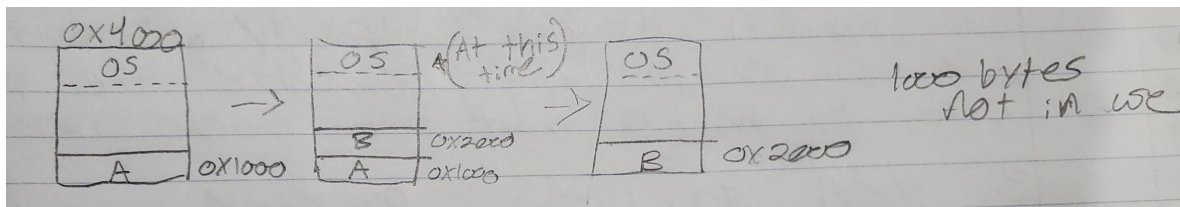 0x4000
OS
A
0x1000
OS
(At this time)
B
0x2000
A
0x1000
OS
B
0x2000
1000 bytes
not in use